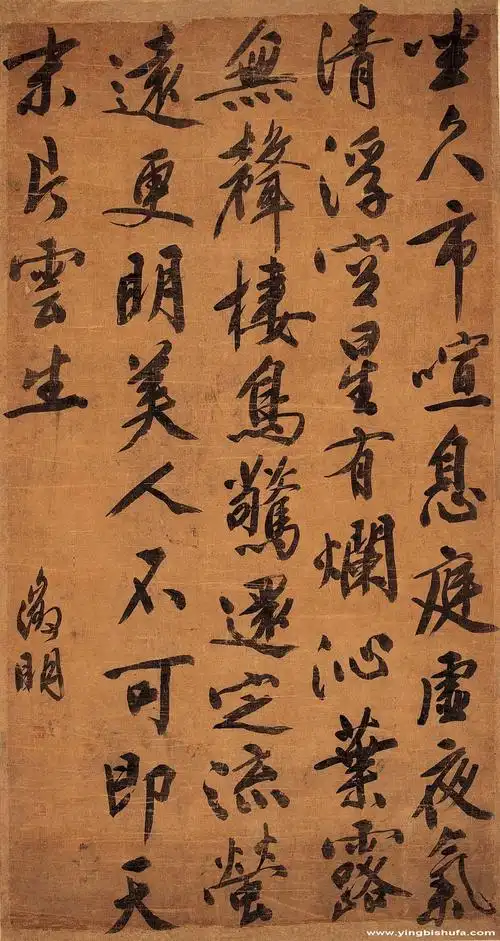 坐久市喧息庭虛夜氣
清浮空星有爛沁葉露
無聲棲鳥驚還定流螢
遠更明美人不可即天
末片雲生
徵明
www.yingbishufa.com